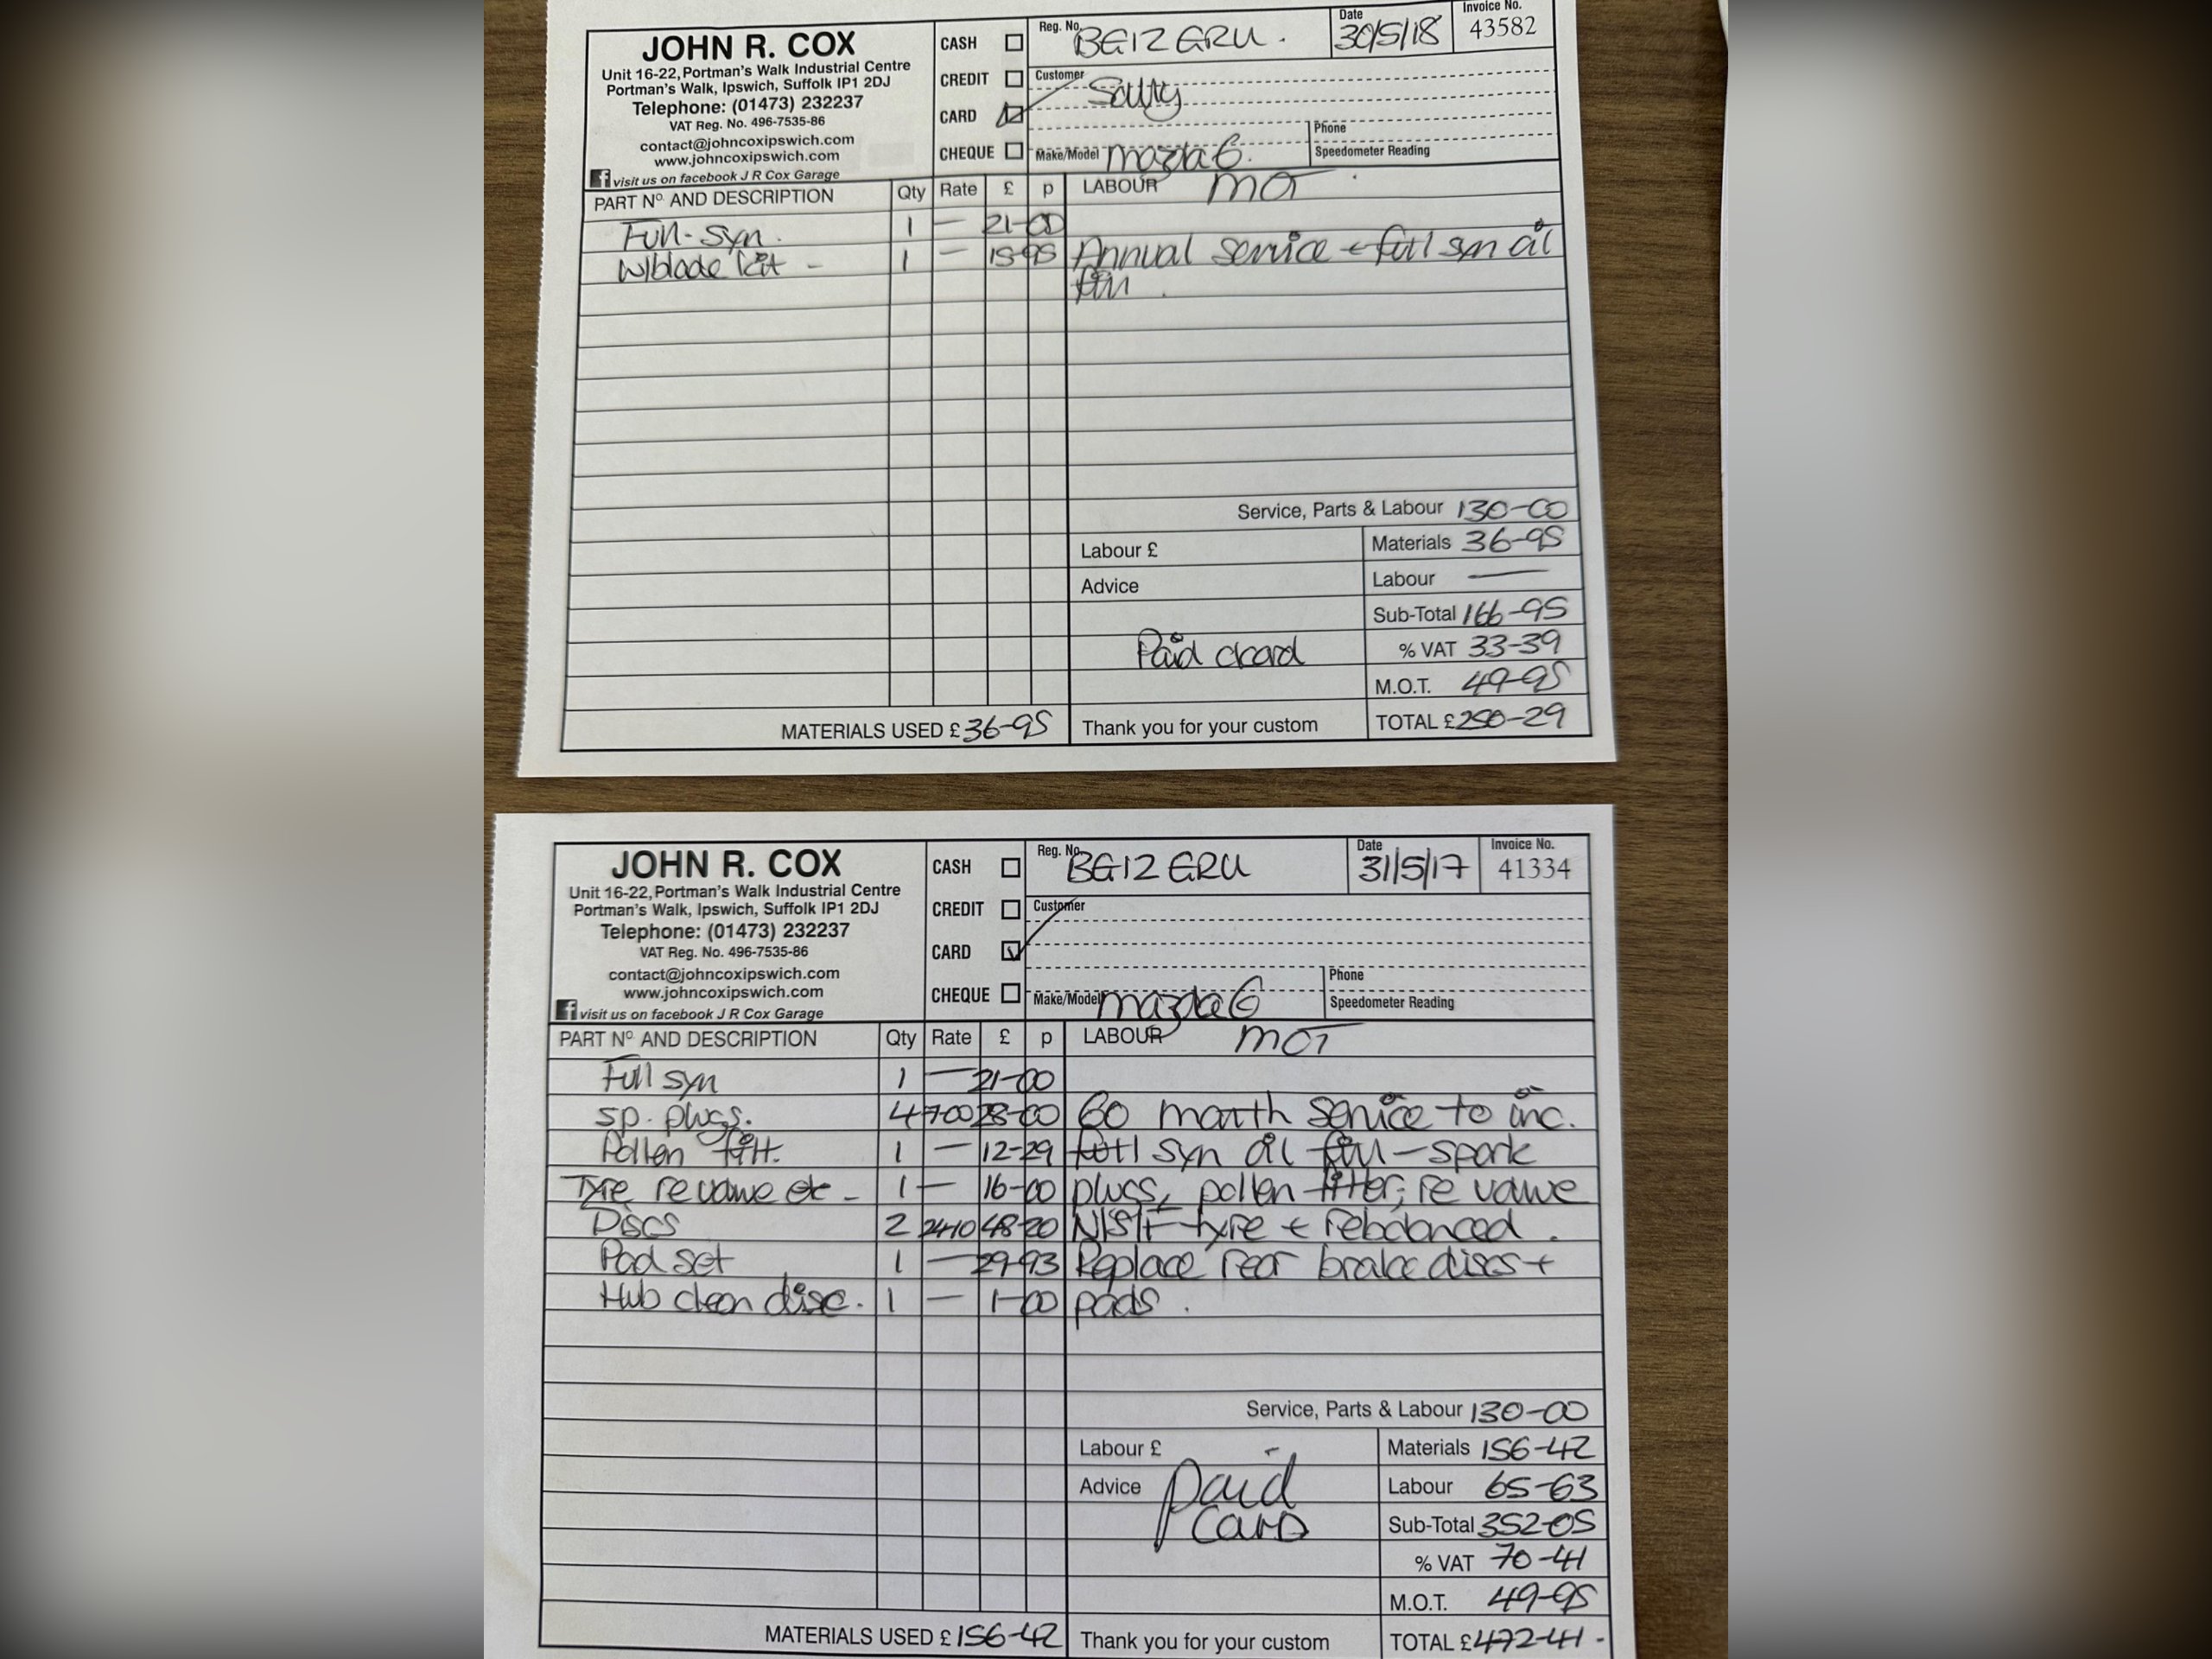 JOHN R. COX
Unit 16-22, Portman's Walk Industrial Centre
Portman's Walk, Ipswich, Suffolk IP1 2DJ
Telephone: (01473) 232237
VAT Reg. No. 496-7535-86
contact@johncoxipswich.com
www.johncoxipswich.com
visit us on facebook J R Cox Garage
CASH
CREDIT
CARD
CHEQUE
Reg. No. BG12 GRU .
Date 30/5/18
Invoice No. 43582
Customer
Make/Model mazda 6.
Phone
Speedometer Reading
PART Nº AND DESCRIPTION Qty Rate £ p LABOUR MOT
Full-syn. 1 — 21-00
W/blade kit - 1 — 15-95 Annual service + full syn oil
Service, Parts & Labour 130-00
Labour £ Materials 36-95
Advice Labour —
Sub-Total 166-95
Paid card % VAT 33-39
M.O.T. 49-95
MATERIALS USED £ 36-95 Thank you for your custom TOTAL £ 250-29
JOHN R. COX
Unit 16-22, Portman's Walk Industrial Centre
Portman's Walk, Ipswich, Suffolk IP1 2DJ
Telephone: (01473) 232237
VAT Reg. No. 496-7535-86
contact@johncoxipswich.com
www.johncoxipswich.com
visit us on facebook J R Cox Garage
CASH
CREDIT
CARD
CHEQUE
Reg. No. BG12 GRU
Date 31/5/17
Invoice No. 41334
Customer
Make/Model mazda 6
Phone
Speedometer Reading
PART Nº AND DESCRIPTION Qty Rate £ p LABOUR MOT
Full syn 1 — 21-00
sp. plugs. 4 7-00 28-00 60 month service to inc.
Pollen filt. 1 — 12-29 full syn oil - spark
Tyre re valve etc - 1 — 16-00 plugs, pollen filter, re valve
Discs 2 24-10 48-20 N/S/F tyre + rebalanced .
Pad set 1 — 29-93 Replace rear brake discs +
Hub clean disc. 1 — 1-00 pads .
Service, Parts & Labour 130-00
Labour £ Materials 156-42
Advice Paid Labour 65-63
Card Sub-Total 352-05
% VAT 70-41
M.O.T. 49-95
MATERIALS USED £ 156-42 Thank you for your custom TOTAL £ 472-41 -